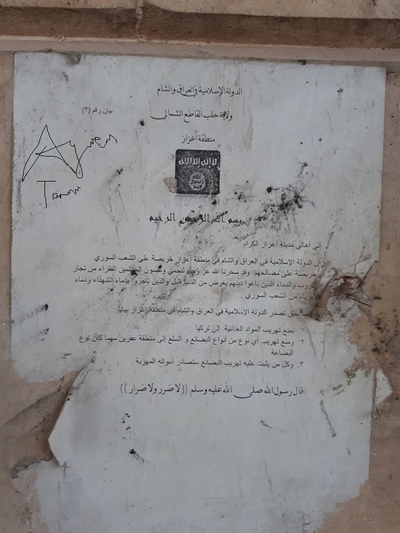 الدولة الإسلامية في العراق والشام
ولاية حلب القاطع الشمالي
بيان رقم (٣)
منطقة أعزاز
لا إله إلا الله
Aymen
Tamm
بسم الله الرحمن الرحيم
إلى أهالي مدينة أعزاز الكرام
الدولة الإسلامية في العراق والشام في منطقة أعزاز حريصة على الشعب السوري
حريصة على مصالحهم، وقد سخرنا الله عز وجل لنحمي ونصون المسلمين الفقراء من تجار
والدماء الذين باعوا دينهم بعرض من الدنيا قليل والذين تاجروا بدماء الشهداء ودماء
من الشعب السوري
تصدر الدولة الإسلامية في العراق والشام في منطقة أعزاز بيانا
يمنع تهريب المواد الغذائية إلى تركيا
٢ ويمنع تهريب أي نوع من أنواع البضائع و السلع إلى منطقة عفرين مهما كان نوع
البضاعة
٣ وكل من يثبت عليه تهريب البضائع ستصادر أمواله المهربة
قال رسول الله صلى الله عليه وسلم ((لا ضرر ولا ضرار))